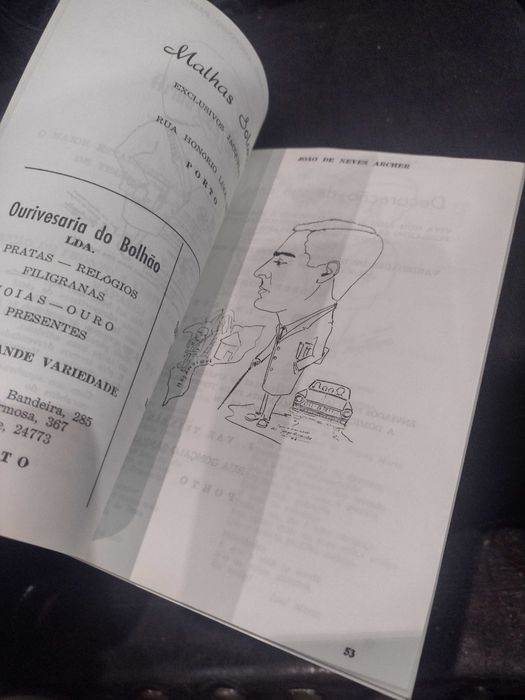 Malhas
EXCLUSIVOS
RUA HONORIO
PORTO
Ourivesaria do Bolhão
LDA.
PRATAS — RELOGIOS
FILIGRANAS
OIAS — OURO
PRESENTES
ANDE VARIEDADE
Bandeira, 285
rmosa, 367
e, 24773
TO
JOÃO DE NEVES ARCHER
53